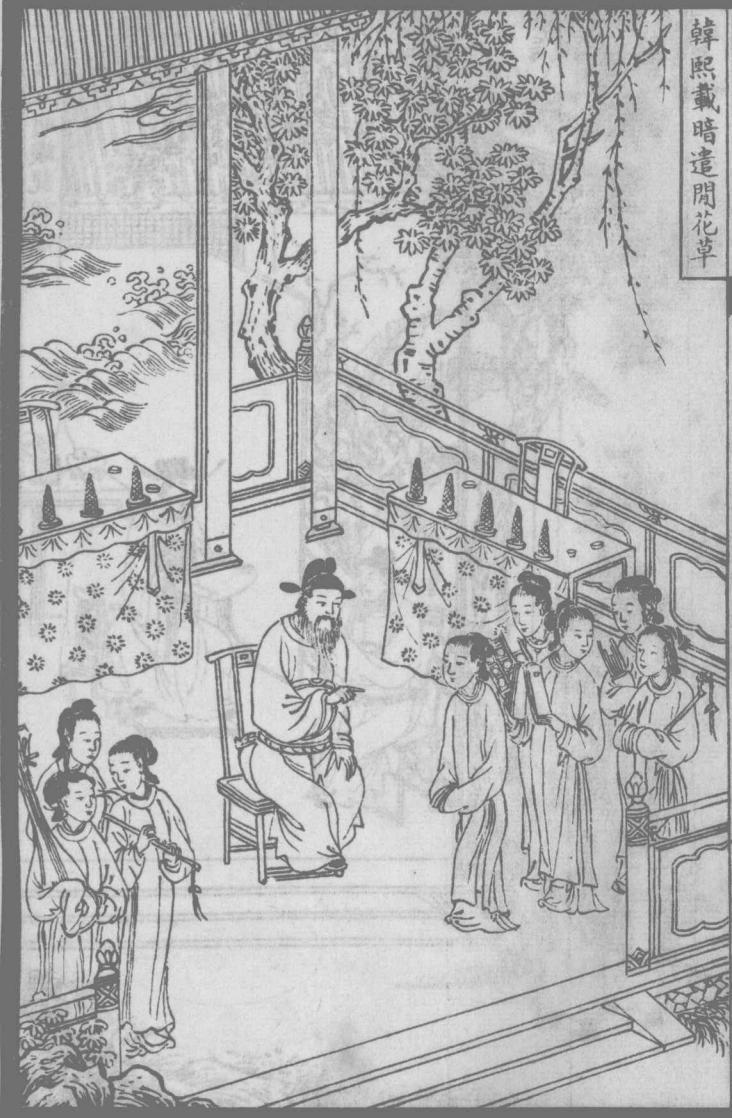 韓熙載暗遣閒花草